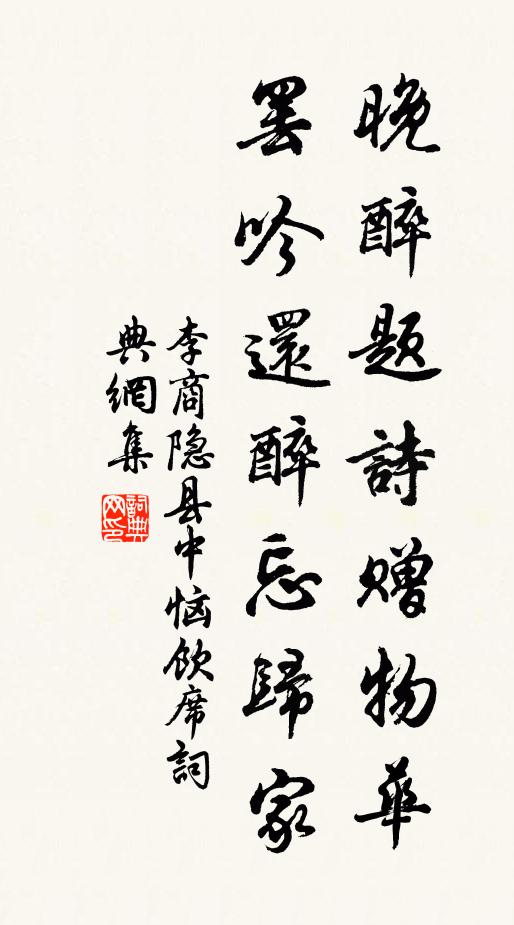 晚醉题詩赠物華
罢吟還醉忘歸家
李商隐县中恼饮席詞
典網集
詞典网印